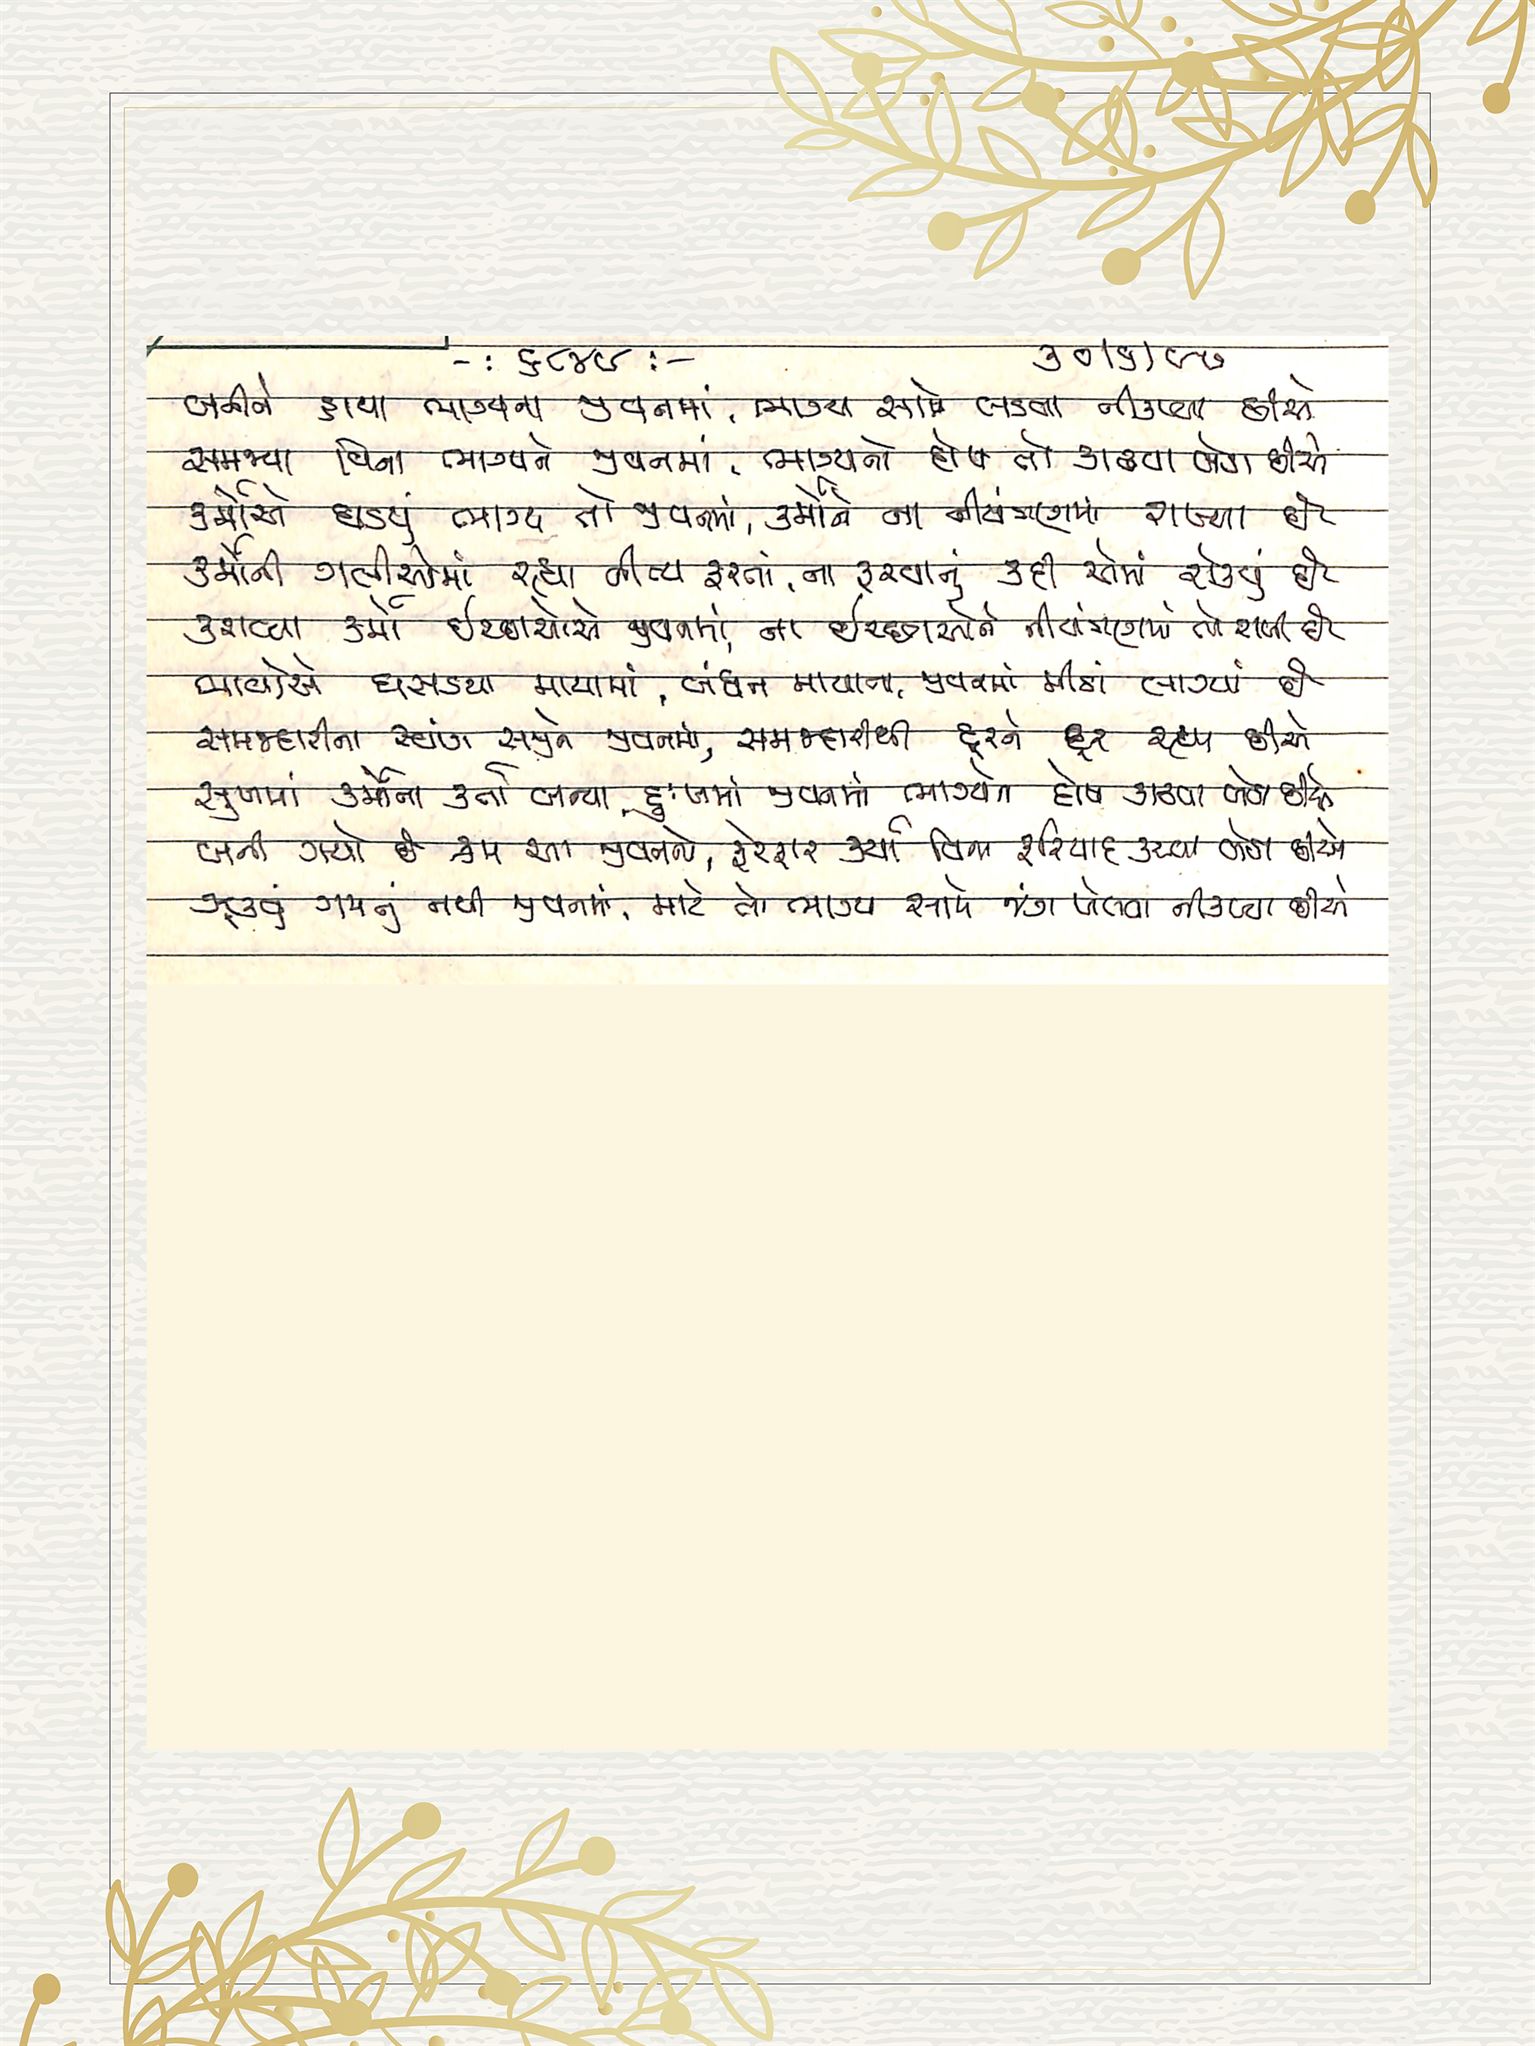 -: ૬૮૪૯ :- ૩૦/૫/૯૭
બનીને ડાહ્યા ભાગ્યના જીવનમાં, ભાગ્ય સામે લડવા નીકળ્યા છીએ
સમજ્યા વિના ભાગ્યને જીવનમાં, ભાગ્યનો દોષ તો કાઢવા બેઠા છીએ
કર્મોએ ઘડયું ભાગ્ય તો જીવનમાં, કર્મોને ના નીયંત્રણમાં રાખ્યા છે
કર્મોની ગલીઓમાં રહ્યા નીત્ય ફરતાં, ના ફરવાનું કદી એમાં રોકયું છે
કરાવ્યા કર્મો ઈચ્છાઓએ જીવનમાં, ના ઈચ્છાઓને નીયંત્રણમાં તો રાખી છે
ભાવોએ ઘસડયા માયામાં, બંધન માયાના, જીવનમાં મીઠાં લાગ્યાં છે
સમજદારીના સ્વાંગ સજીને જીવનમાં, સમજદારીથી દૂરને દૂર રહ્યા છીએ
સુખમાં કર્મોના કર્તા બન્યા દુઃખમાં જીવનમાં ભાગ્યને દોષ કાઢવા બેઠા છીએ
બની ગયો છે ક્રમ આ જીવનનો, ફેરફાર કર્યા વિના ફરિયાદ કરવા બેઠા છીએ
ઝૂકવું ગમતું નથી જીવનમાં, માટે તો ભાગ્ય સામે જંગ ખેલવા નીકળ્યા છીએ